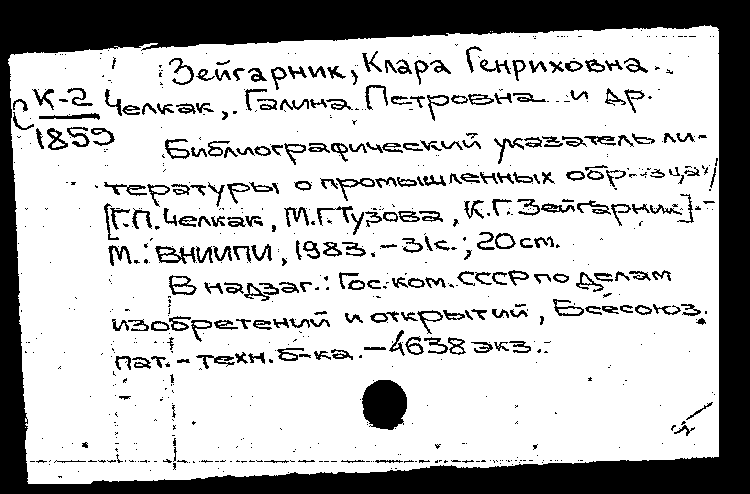 Зейгарник, Клара Генриховна.
С К-2 Челкак, Галина Петровна и др.
1859
Библиографический указатель ли-
тературы о промышленных образцах/
[Г.П. Челкак, М.Г. Тузова, К.Г. Зейгарник].-
М.: ВНИИПИ, 1983. - 31с.; 20 cm.
В надзаг.: Гос. ком. СССР по делам
изобретений и открытий, Всесоюз.
пат.-техн. б-ка. - 4638 экз.